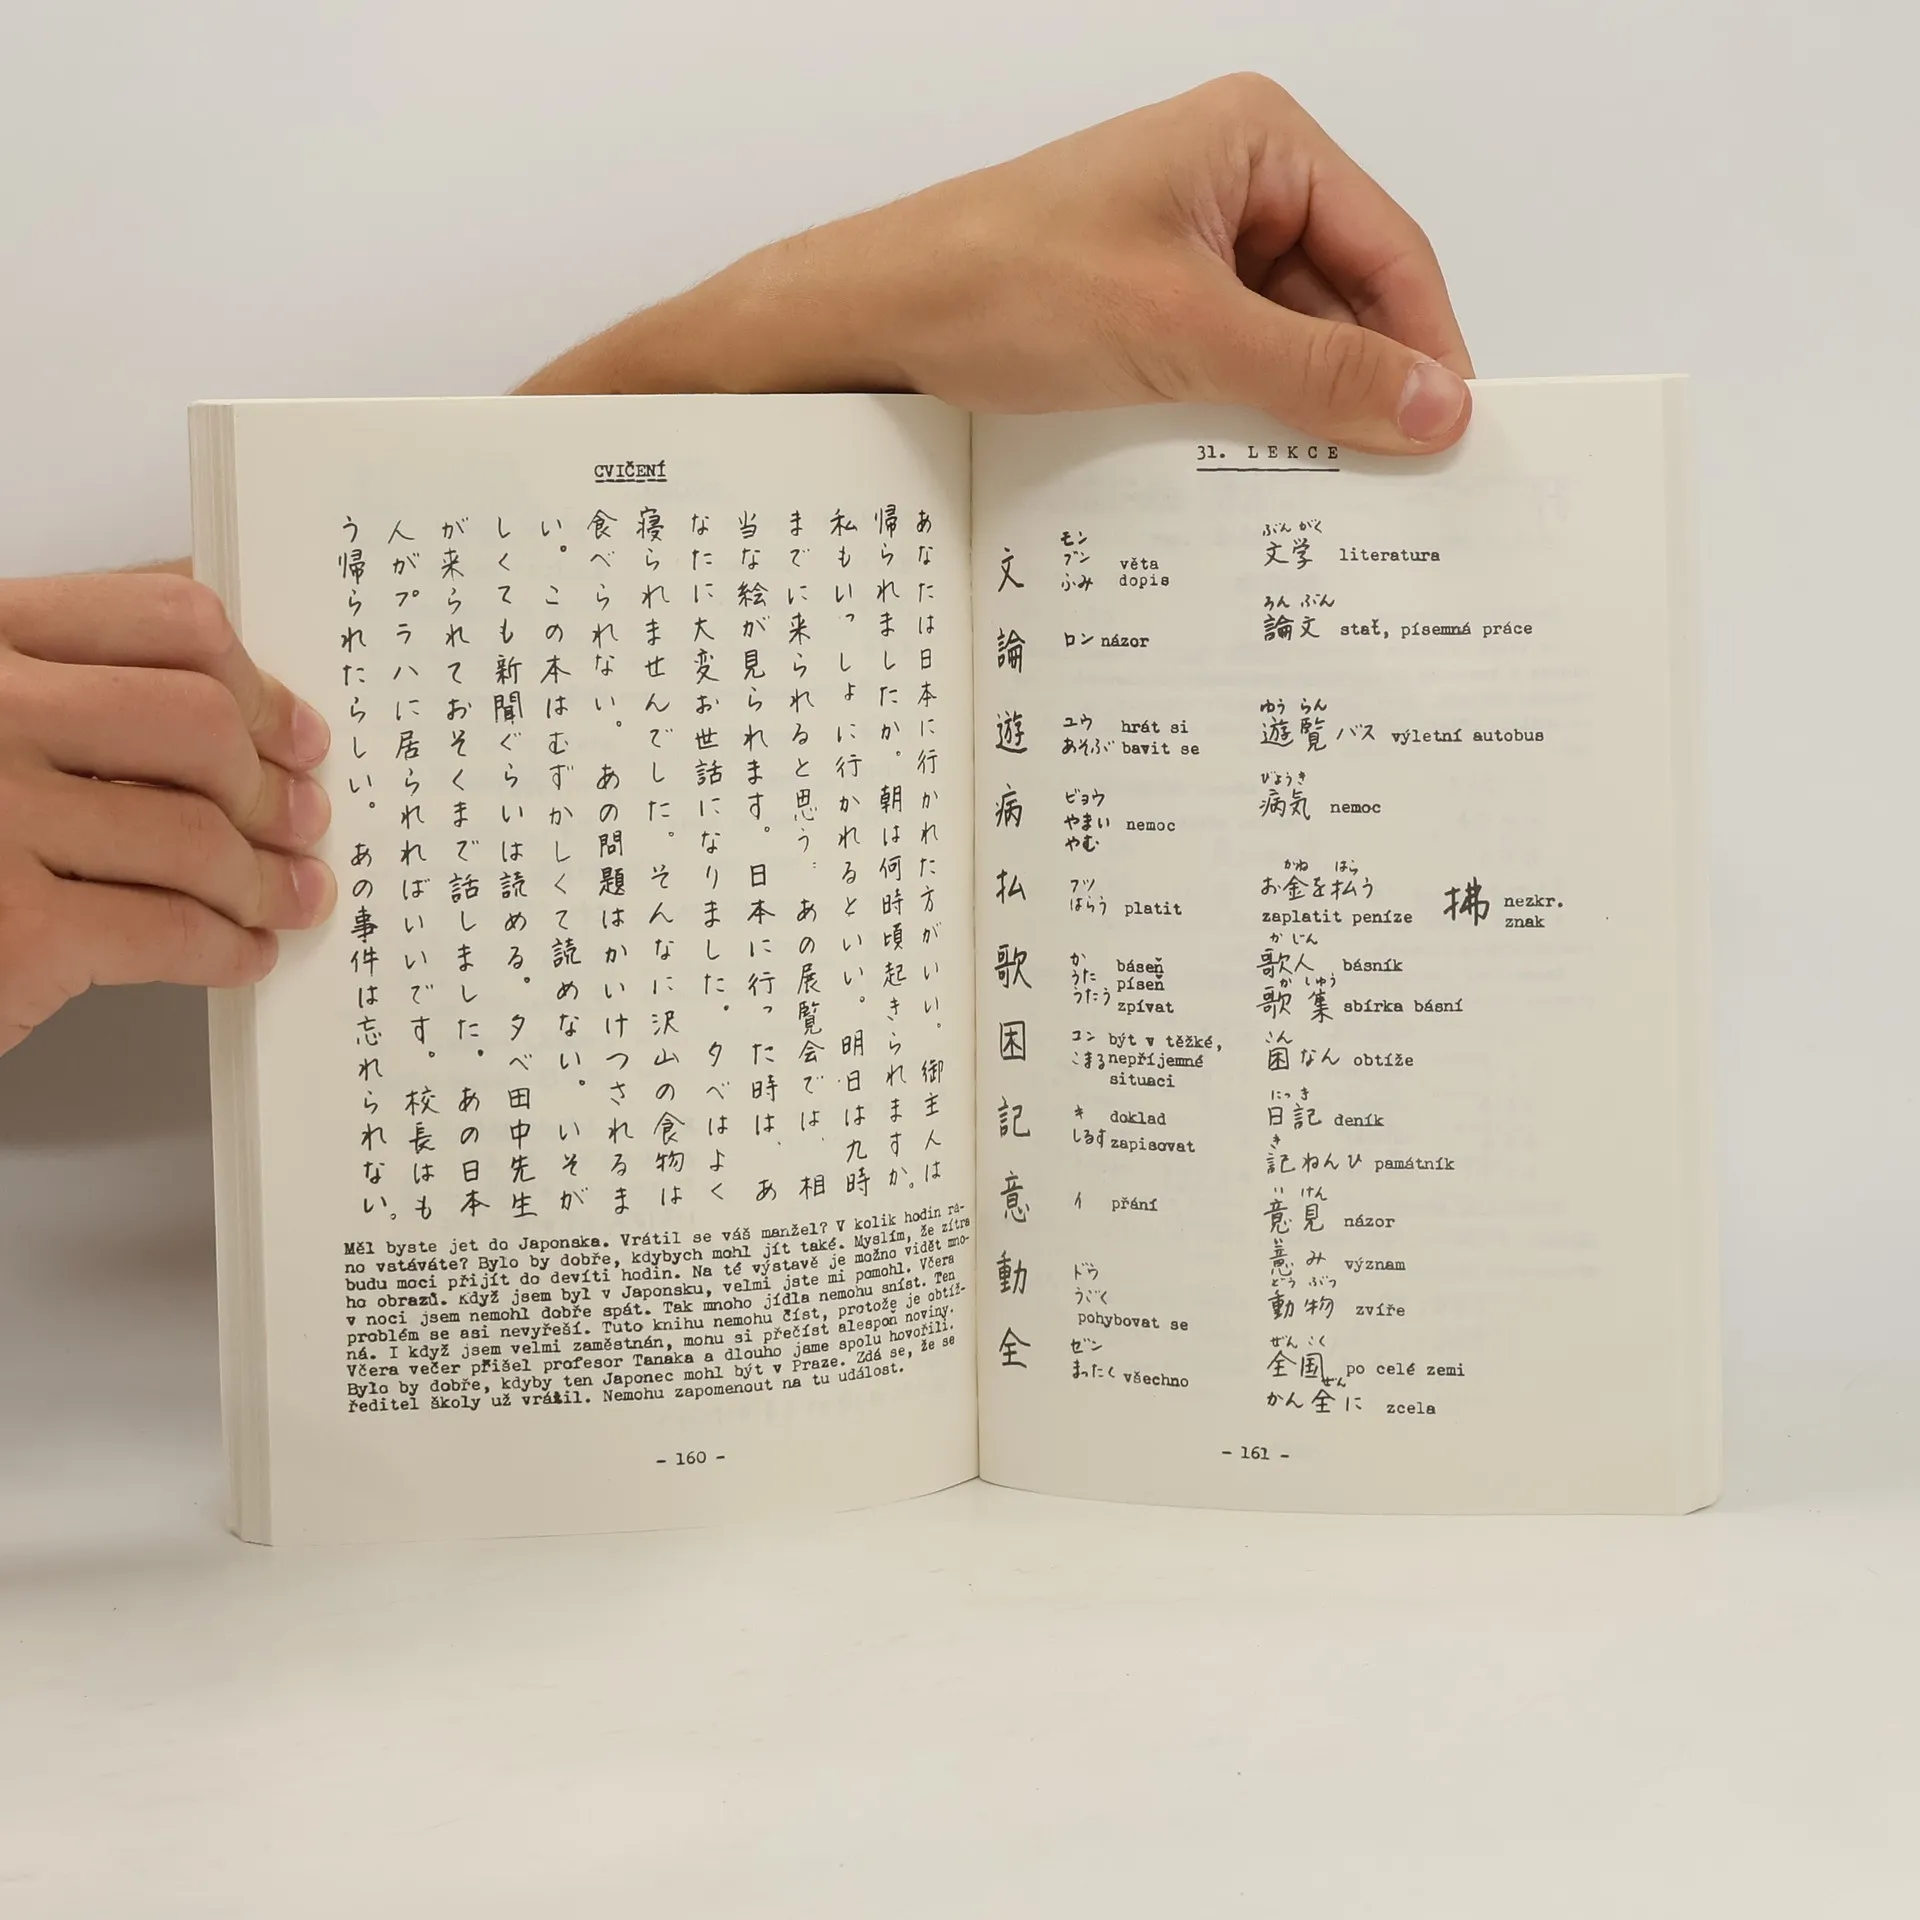 CVIČENÍ
あなたは日本に行かれた方がいい。御主人は
帰られましたか。朝は何時頃起きられますか。
私もいっしょに行かれるといい。明日は九時
までに来られると思う。あの展覧会では、相
当な絵が見られます。日本に行った時は、あ
なたに大変お世話になりました。夕べはよく
寝られませんでした。そんなに沢山の食物は
食べられない。あの問題はかいけつされるま
い。この本はむずかしくて読めない。いそが
しくても新聞ぐらいは読める。夕べ田中先生
が来られておそくまで話しました。あの日本
人がプラハに居られればいいです。校長はも
う帰られたらしい。あの事件は忘れられない。
Měl byste jet do Japonska. Vrátil se váš manžel? V kolik hodin rá-
no vstáváte? Bylo by dobře, kdybych mohl jít také. Myslím, že zítra
budu moci přijít do devíti hodin. Na té výstavě je možno vidět mno-
ho obrazů. Když jsem byl v Japonsku, velmi jste mi pomohl. Včera
v noci jsem nemohl dobře spát. Tak mnoho jídla nemohu sníst. Ten
problém se asi nevyřeší. Tuto knihu nemohu číst, protože je obtíž-
ná. I když jsem velmi zaměstnán, mohu si přečíst alespoň noviny.
Včera večer přišel profesor Tanaka a dlouho jsme spolu hovořili.
Bylo by dobře, kdyby ten Japonec mohl být v Praze. Zdá se, že se
ředitel školy už vrátil. Nemohu zapomenout na tu událost.
- 160 -
31. LEKCE
文 モン ブン ふみ věta dopis
ぶん がく
文学 literatura
ろん ぶん
論文 stať, písemná práce
論 ロン názor
遊 ユウ あそぶ hrát si bavit se
ゆう らん
遊覧バス výletní autobus
病 ビョウ やまい やむ nemoc
びょうき
病気 nemoc
払 フツ はらう platit
かね はら
お金を払う
zaplatit peníze
拂 nezkr. znak
歌 か うた うたう báseň píseň zpívat
か じん
歌人 básník
か しゅう
歌集 sbírka básní
困 コン こまる být v těžké, nepříjemné situaci
こん
困なん obtíže
記 キ しるす doklad zapisovat
にっ き
日記 deník
き
記ねんひ památník
意 イ přání
い けん
意見 názor
い
意み význam
動 ドウ うごく pohybovat se
どう ぶつ
動物 zvíře
全 ゼン まったく všechno
ぜん こく
全国 po celé zemi
ぜん
かん全に zcela
- 161 -